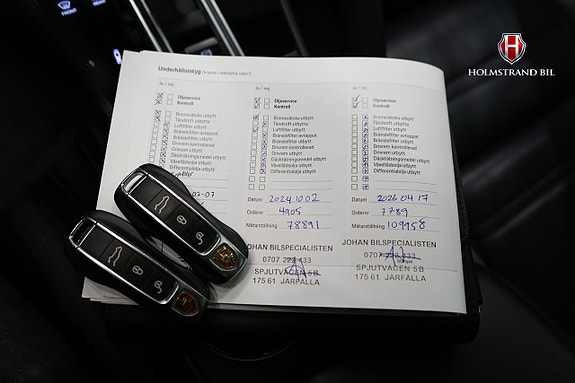 HOLMSTRAND BIL
FRONT
REAR
Underhållsintyg (kryssa i relevanta rutor!)
Ja / nej
Oljeservice
Kontroll
Bromsvätska utbytt
Tändstift utbytt
Luftfilter utbytt
Bränslefilter avtappat
Bränslefilter utbytt
Drivrem kontrollerad
Drivrem utbytt
Däcktätningsmedel utbytt
Växellådsolja utbytt
Differentialolja utbytt
Ja / nej
Oljeservice
Kontroll
Bromsvätska utbytt
Tändstift utbytt
Luftfilter utbytt
Bränslefilter avtappat
Bränslefilter utbytt
Drivrem kontrollerad
Drivrem utbytt
Däcktätningsmedel utbytt
Växellådsolja utbytt
Differentialolja utbytt
Datum 2024.10.02
Ordernr 4905
Mätarställning 78891
JOHAN BILSPECIALISTEN
0707 228 433
SPJUTVÄGEN 5B
175 61 JÄRFÄLLA
Ja / nej
Oljeservice
Kontroll
Bromsvätska utbytt
Tändstift utbytt
Luftfilter utbytt
Bränslefilter avtappat
Bränslefilter utbytt
Drivrem kontrollerad
Drivrem utbytt
Däcktätningsmedel utbytt
Växellådsolja utbytt
Differentialolja utbytt
Datum 2026 04 17
Ordernr 7789
Mätarställning 109958
JOHAN BILSPECIALISTEN
0707 228 433
SPJUTVÄGEN 5B
175 61 JÄRFÄLLA